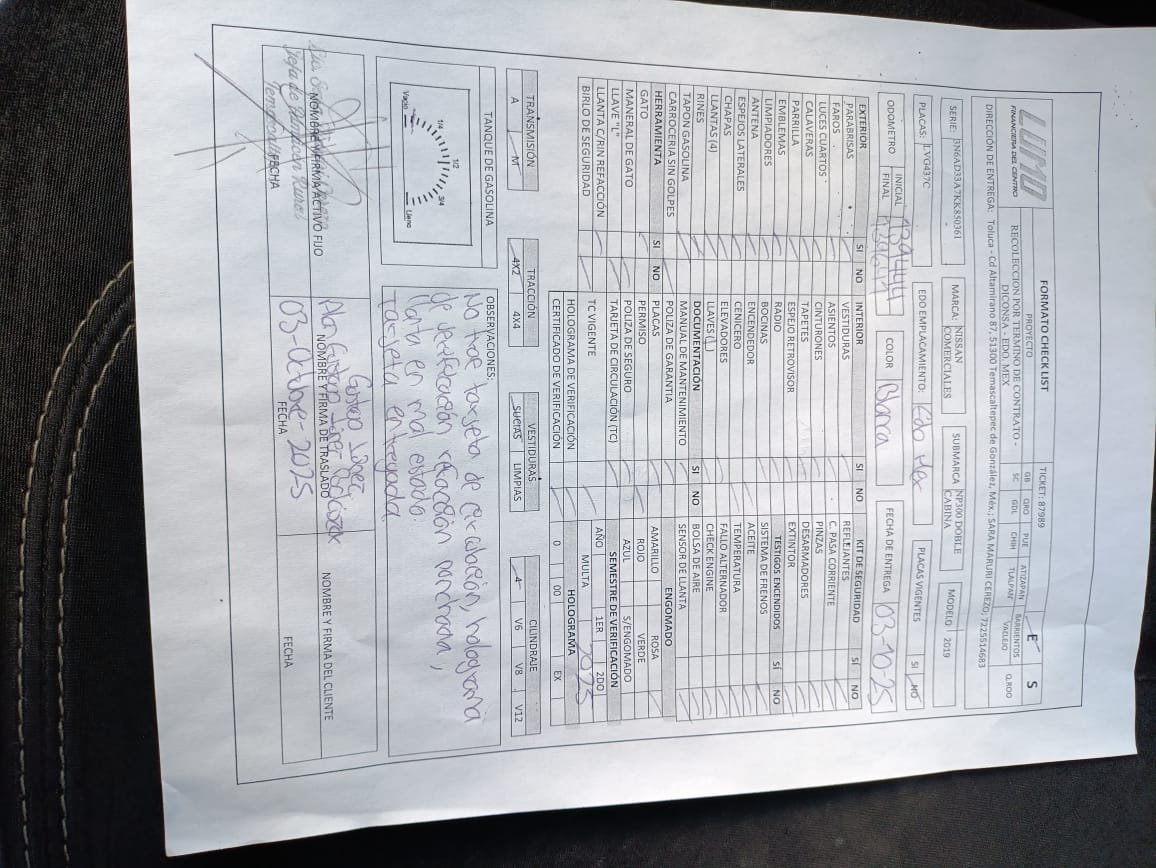 LUMO
FINANCIERA DEL CENTRO
FORMATO CHECK LIST
TICKET: 87989
PROYECTO
RECOLECCION POR TERMINO DE CONTRATO -
DICONSA - EDO MEX
E S
GB QRO PUE ATIZAPAN BARRIENTOS Q.ROO
SC GDL CHIH TLALPAN VALLEJO
DIRECCIÓN DE ENTREGA: Toluca - Cd Altamirano 87, 51300 Temascaltepec de González, Méx.; SARA MARURI CEREZO; 7225514683
SERIE: 3N6AD33A7KK850361
MARCA: NISSAN COMERCIALES
SUBMARCA NP300 DOBLE CABINA
MODELO 2019
PLACAS: LVG437C
EDO EMPLACAMIENTO: Edo Mex
PLACAS VIGENTES SI NO
ODOMETRO INICIAL
FINAL
COLOR Blanca
FECHA DE ENTREGA 03-10-25
EXTERIOR SI NO INTERIOR SI NO KIT DE SEGURIDAD SÍ NO
PARABRISAS VESTIDURAS REFLEJANTES
FAROS ASIENTOS C. PASA CORRIENTE
LUCES CUARTOS CINTURONES PINZAS
CALAVERAS TAPETES DESARMADORES
PARRILLA ESPEJO RETROVISOR EXTINTOR
EMBLEMAS RADIO TESTIGOS ENCENDIDOS SÍ NO
LIMPIADORES BOCINAS SISTEMA DE FRENOS
ANTENA ENCENDEDOR ACEITE
ESPEJOS LATERALES CENICERO TEMPERATURA
CHAPAS ELEVADORES FALLO ALTERNADOR
LLANTAS (4) LLAVES (1) CHECK ENGINE
RINES DOCUMENTACIÓN SI NO BOLSA DE AIRE
TAPON GASOLINA MANUAL DE MANTENIMIENTO SENSOR DE LLANTA
CARROCERIA SIN GOLPES POLIZA DE GARANTIA ENGOMADO
HERRAMIENTA SI NO PLACAS AMARILLO ROSA
GATO PERMISO ROJO VERDE
MANERAL DE GATO POLIZA DE SEGURO AZUL S/ENGOMADO
LLAVE "L" TARJETA DE CIRCULACIÓN (TC) SEMESTRE DE VERIFICACIÓN
LLANTA C/RIN REFACCIÓN TC VIGENTE AÑO 1ER 2DO
BIRLO DE SEGURIDAD MULTA 2025
HOLOGRAMA DE VERIFICACIÓN HOLOGRAMA
CERTIFICADO DE VERIFICACIÓN 0 00 EX
TRANSMISIÓN TRACCIÓN VESTIDURAS CILINDRAJE
A M 4X2 4X4 SUCIAS LIMPIAS 4 V6 V8 V12
TANQUE DE GASOLINA
Vacío 1/4 1/2 3/4 Lleno
OBSERVACIONES:
No trae tarjeta de circulación, holograma
de verificación refacción ponchada,
llanta en mal estado.
tarjeta entregada
NOMBRE Y FIRMA ACTIVO FIJO
FECHA
Gustavo López
NOMBRE Y FIRMA DE TRASLADO
03-Octubre-2025
FECHA
NOMBRE Y FIRMA DEL CLIENTE
FECHA